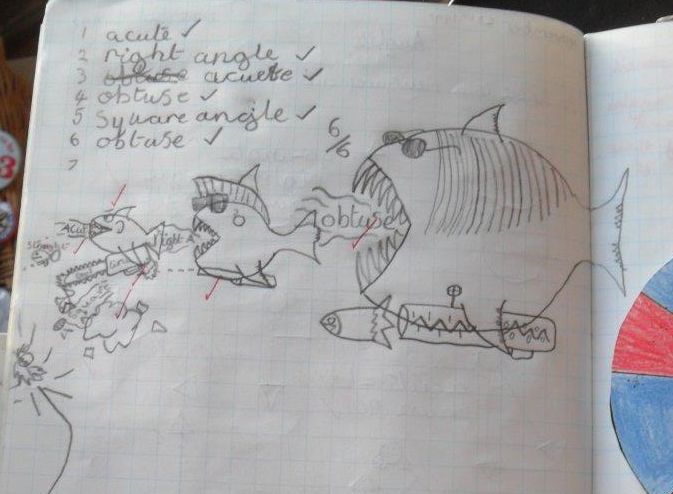 1 acute ✓
2 right angle ✓
3 obtuse acuete ✓
4 obtuse ✓
5 square angle ✓
6 obtuse ✓
7
6/6
Acute
right A
obtuse
3